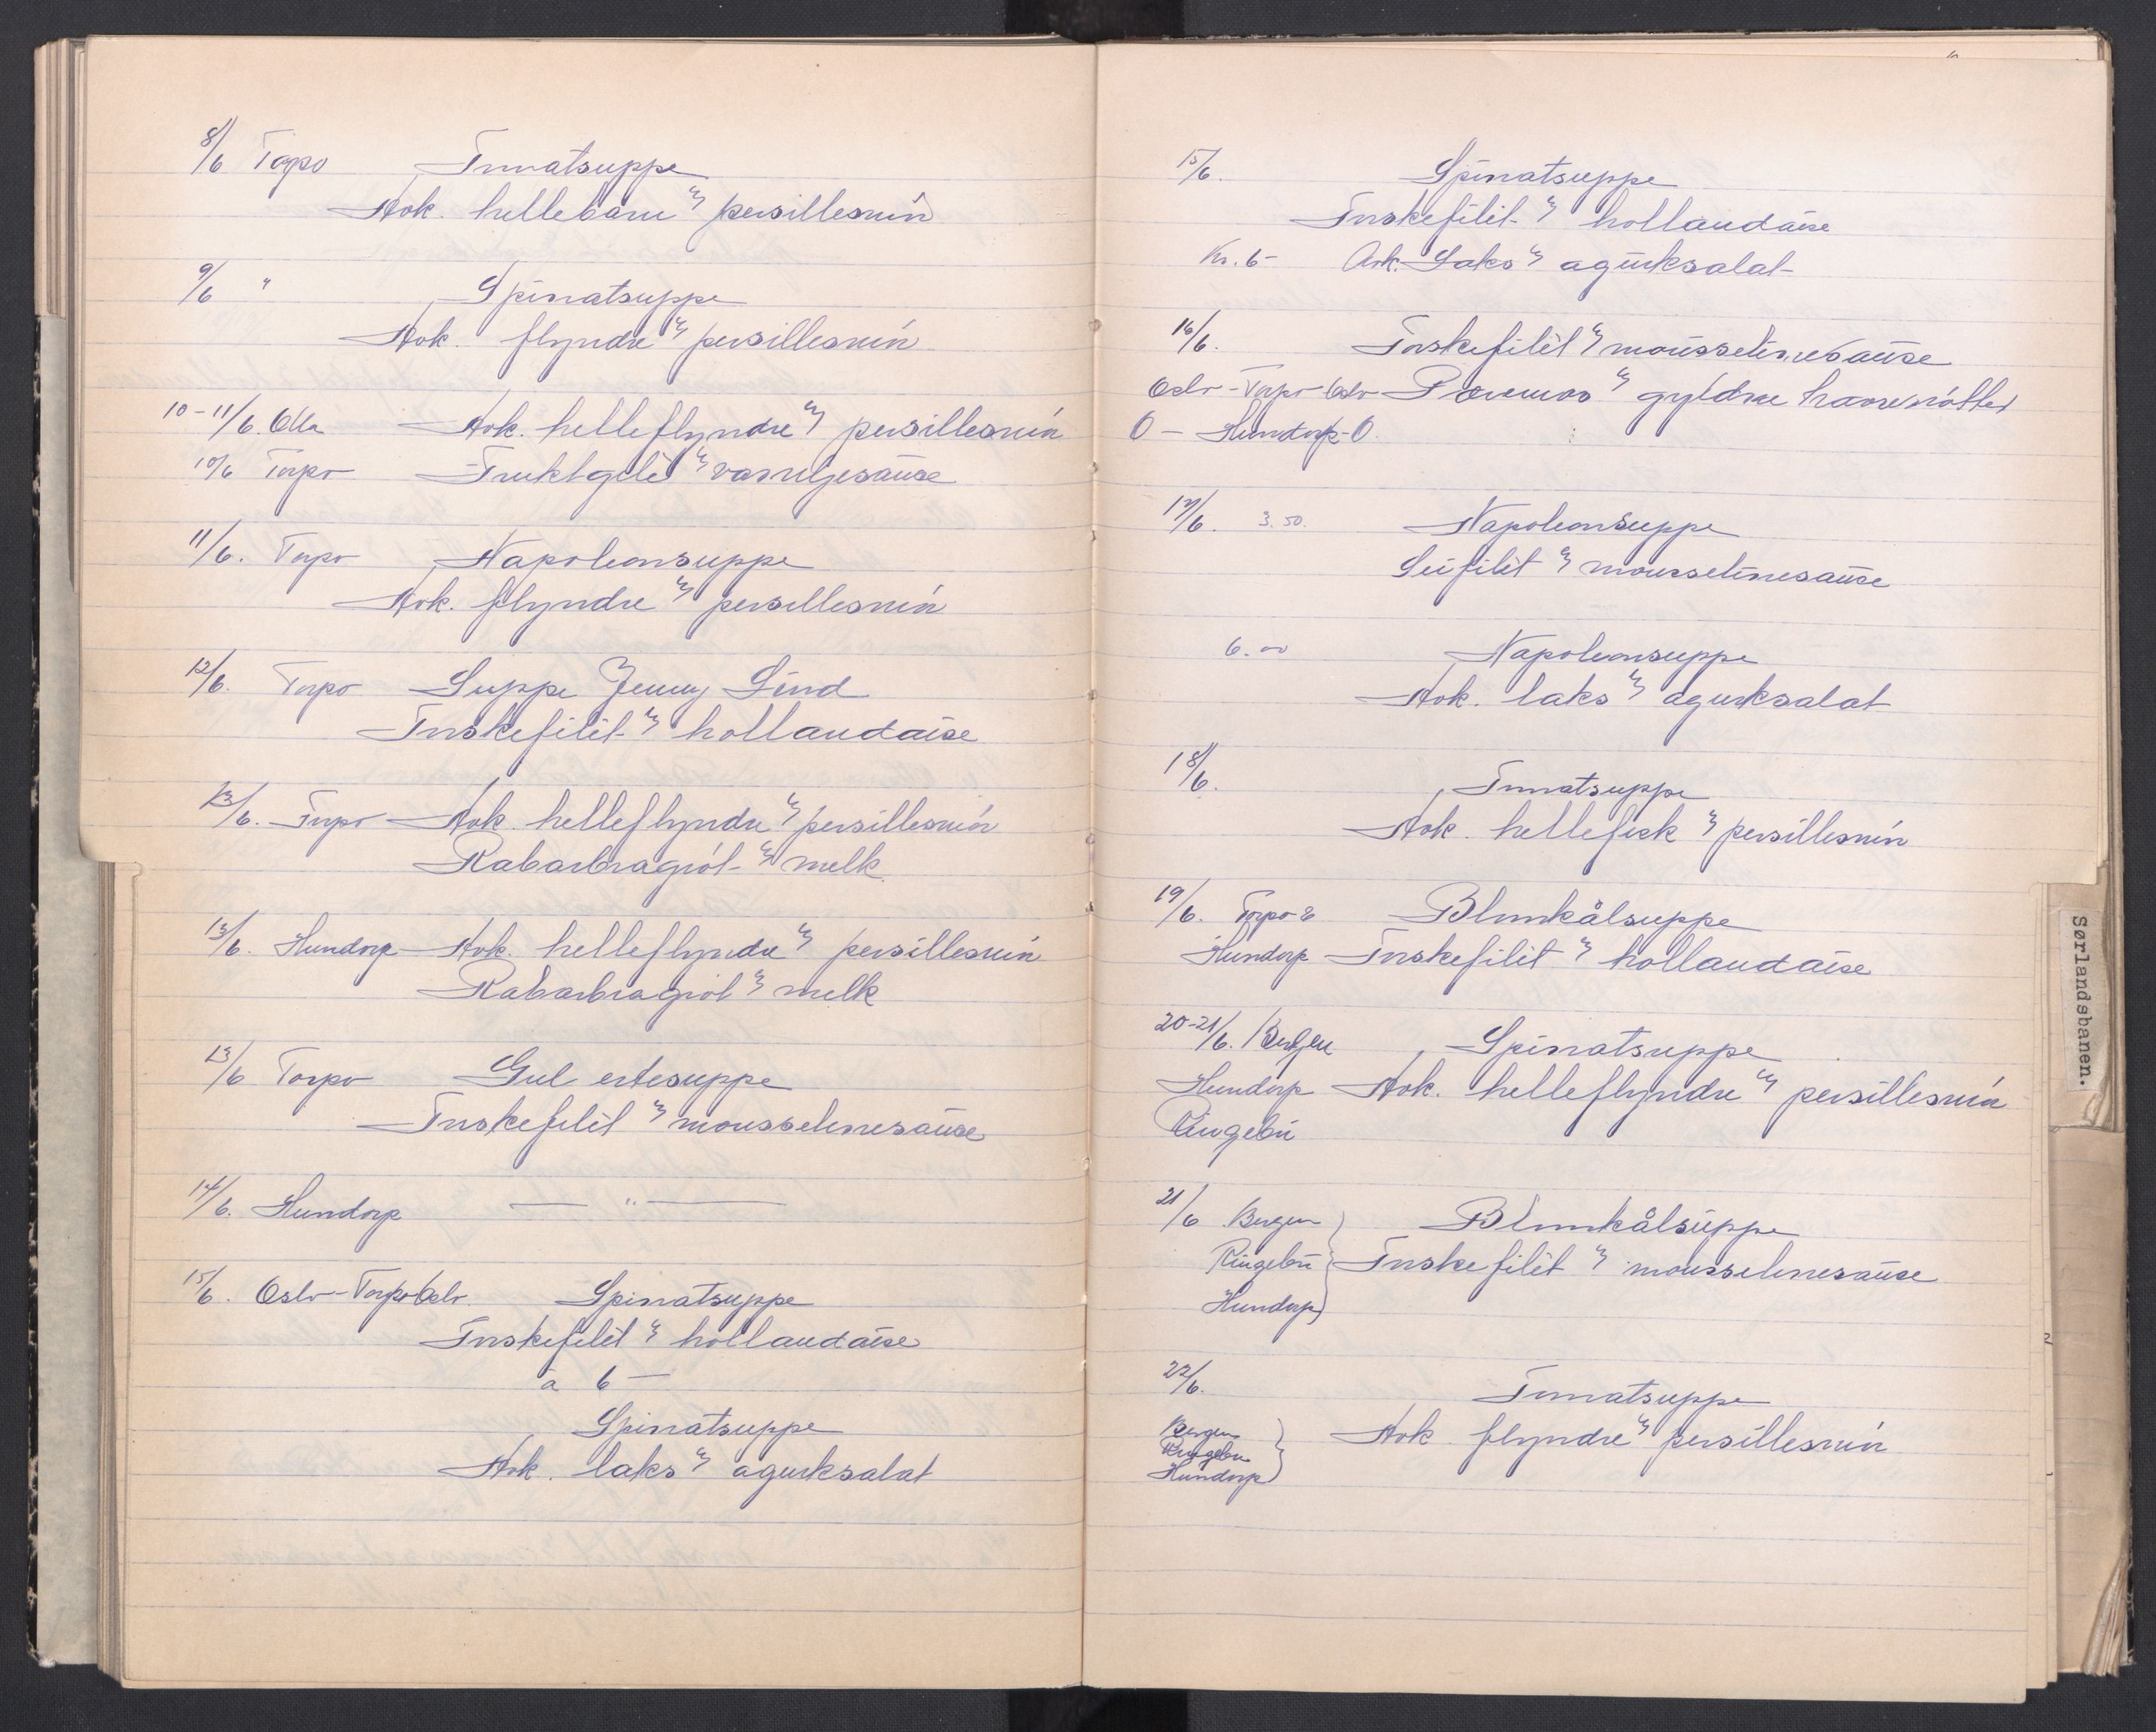 8/6 Torpo Tomatsuppe
Kok. hellebarn m/ persillesmör
9/6 " Spinatsuppe
Kok. flyndre m/ persillesmör
10-11/6. Otta Kok. helleflyndre m/ persillesmör
10/6 Torpo Fruktgelé m/ vaniljesause
11/6. Torpo Napoleonsuppe
Kok. flyndre m/ persillesmör
12/6. Torpo Suppe Jenny Lind
Torskefilét m/ hollandaise
13/6. Torpo Kok. helleflyndre m/ persillesmör
Rabarbragröt m/ melk.
13/6. Hundorp Kok. helleflyndre m/ persillesmör
Rabarbragröt m/ melk
13/6 Torpo Gul ertesuppe
Torskefilét m/ mousselinesause
14/6. Hundorp — " —
15/6. Oslo-Torpo-Oslo. Spinatsuppe
Torskefilét m/ hollandaise
a 6 —
Spinatsuppe
Kok. laks m/ agurksalat
15/6. Spinatsuppe
Torskefilét m/ hollandaise
Kr. 6 - Kok. Laks m/ agurksalat
16/6. Torskefilét m/ mousselinesause
Oslo-Torpo-Oslo Pæremos m/ gyldne havrenötter
O - Hundorp - O.
17/6. 3.50. Napoleonsuppe
Seifilét m/ mousselinesause
6.00 Napoleonsuppe
Kok. laks m/ agurksalat
18/6. Tomatsuppe
Kok. hellefisk m/ persillesmör
19/6. Torpo & Blomkålsuppe
Hundorp Torskefilét m/ hollandaise
20-21/6. Bergen Spinatsuppe
Hundorp Kok. helleflyndre m/ persillesmör
Ringebu
21/6 Bergen Blomkålsuppe
Ringebu Torskefilét m/ mousselinesause
Hundorp
22/6. Tomatsuppe
Bergen Kok flyndre m/ persillesmör
Ringebu
Hundorp
Sørlandsbanen.